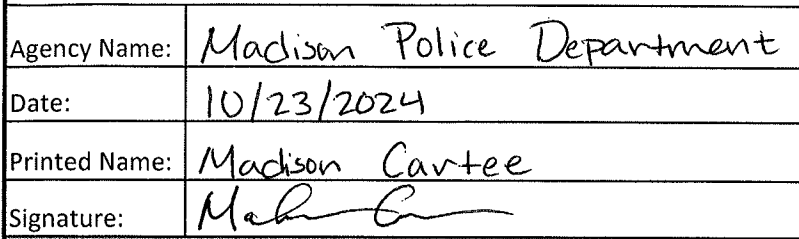 Agency Name: Madison Police Department
Date: 10/23/2024
Printed Name: Madison Cartee
Signature: